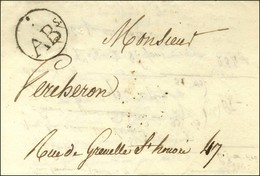 AB
Monsieur
Percheron
Rue de Grenelle St honoré 47.